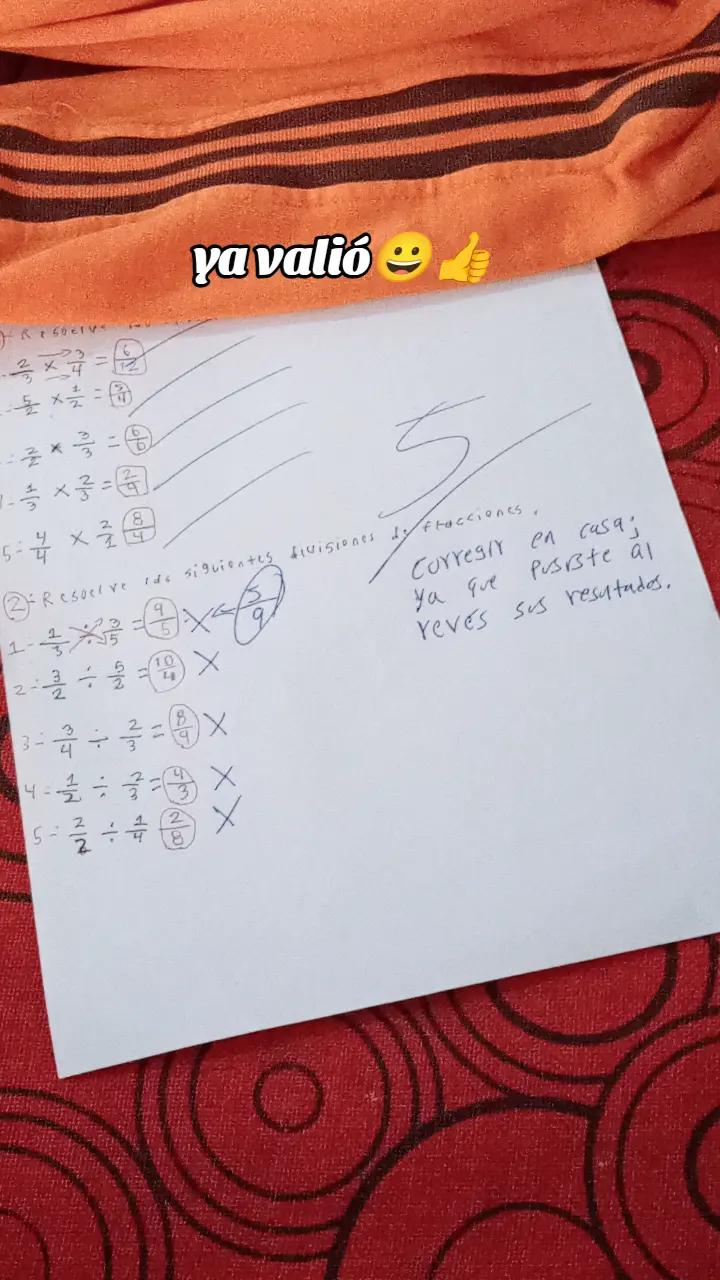 ya valió😀👍
Resuelve
2/3 × 3/4 = 6/12
5/2 × 1/2 = 5/4
2/2 × 3/3 = 6/6
1/3 × 2/3 = 2/9
5= 4/4 × 2/1 8/4
5
②= Resuelve las siguientes divisiones de fracciones.
1- 1/3 ÷ 3/5 = 9/5 X ← 5/9
2= 3/2 ÷ 5/2 = 10/4 X
3= 3/4 ÷ 2/3 = 8/9 X
4= 1/2 ÷ 2/3 = 4/3 X
5= 2/2 ÷ 1/4 2/8 X
Corregir en casa;
ya que pusiste al
revés sus resultados.